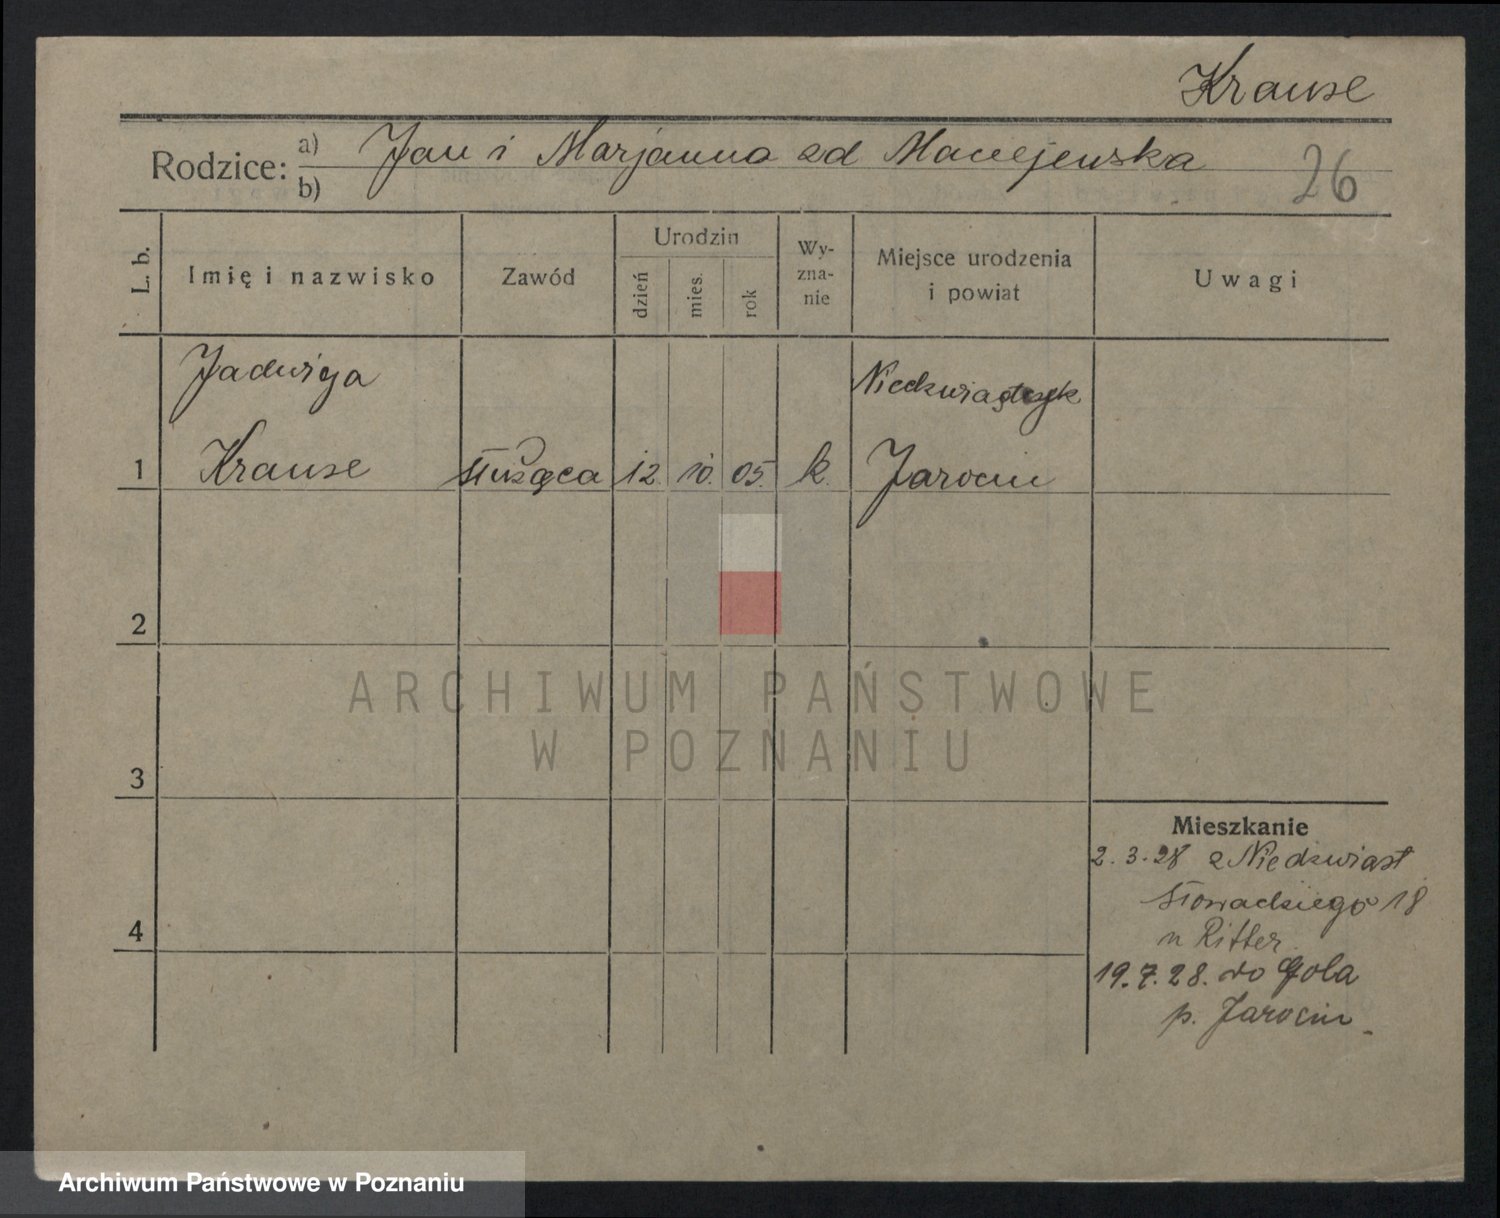 Krause
Rodzice: a) Jan i Marjanna zd Maciejewska
b)
26
L. b.
Imię i nazwisko
Zawód
Urodzin
dzień
mies.
rok
Wy-
zna-
nie
Miejsce urodzenia
i powiat
Uwagi
Jadwiga
1 Krause służąca 12. 10. 05. k. Jarocin
2
3
4
Mieszkanie
2.3.28 z Niedzwiast
Słowackiego 18
u Ritter
19.7.28. do Gola
p. Jarocin
ARCHIWUM PAŃSTWOWE
W POZNANIU
Archiwum Państwowe w Poznaniu